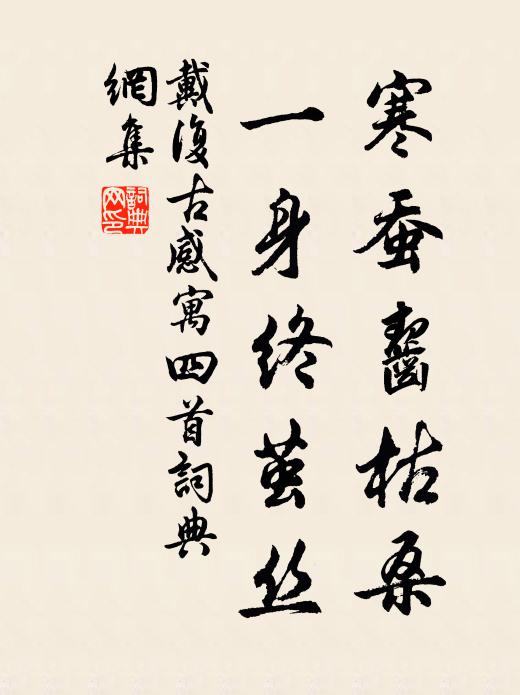 寒蚕齧枯桑
一身终茧丝
戴復古感寓四首詞典
網集
詞典
网印